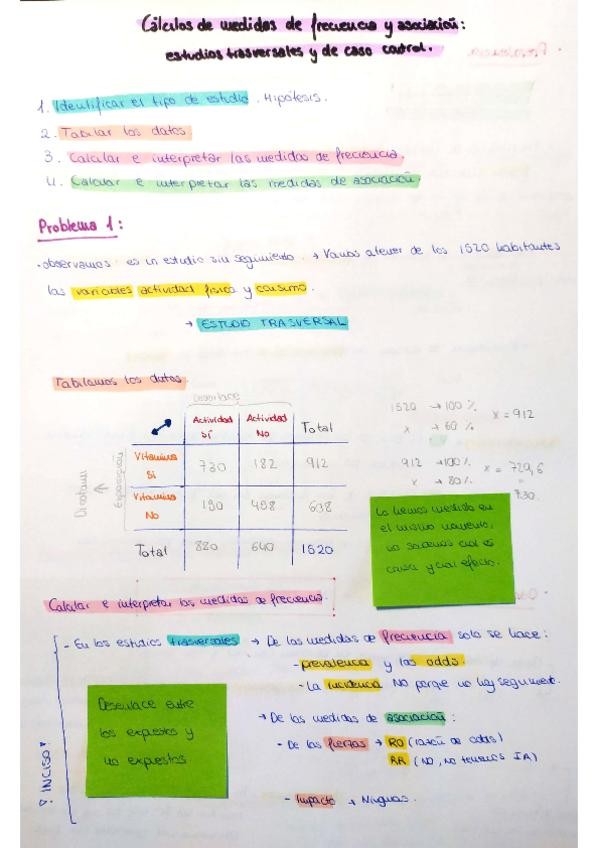 Cálculos de medidas de frecuencia y asociación:
estudios trasversales y de caso control.
1. Identificar el tipo de estudio. Hipótesis.
2. Tabular los datos
3. Calcular e interpretar las medidas de frecuencia.
4. Calcular e interpretar las medidas de asociación.
Problema 1:
· observamos: es un estudio sin seguimiento. → Vamos a tener de los 1520 habitantes
las variables actividad física y consumo.
→ ESTUDIO TRASVERSAL
Tabulamos los datos.
Desenlace
Actividad Sí
Actividad No
Total
Exposición
Vitamina Si
730
182
912
Vitamina No
190
498
608
Total
880
640
1520
1520 → 100 %
x → 60 %
x = 912
912 → 100%
x → 80%
x = 729,6
=
730.
Lo hemos medido en
el mismo momento,
no sabemos cual es
causa y cual efecto.
Calcular e interpretar las medidas de frecuencia.
- En los estudios trasversales → De las medidas de frecuencia solo se hace:
- prevalencia y las odds.
- La incidencia NO porque no hay seguimiento.
Desenlace entre
los expuestos y
no expuestos
→ De las medidas de asociación:
- De las fuertas → RO (razón de odds)
RR (NO, no tenemos IA)
- Impacto → Ninguas.
¡INCISO!